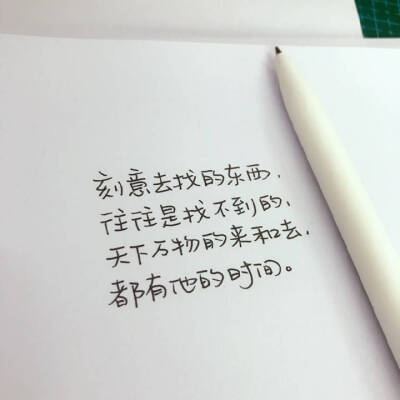 刻意去找的东西,
往往是找不到的,
天下万物的来和去,
都有他的时间。